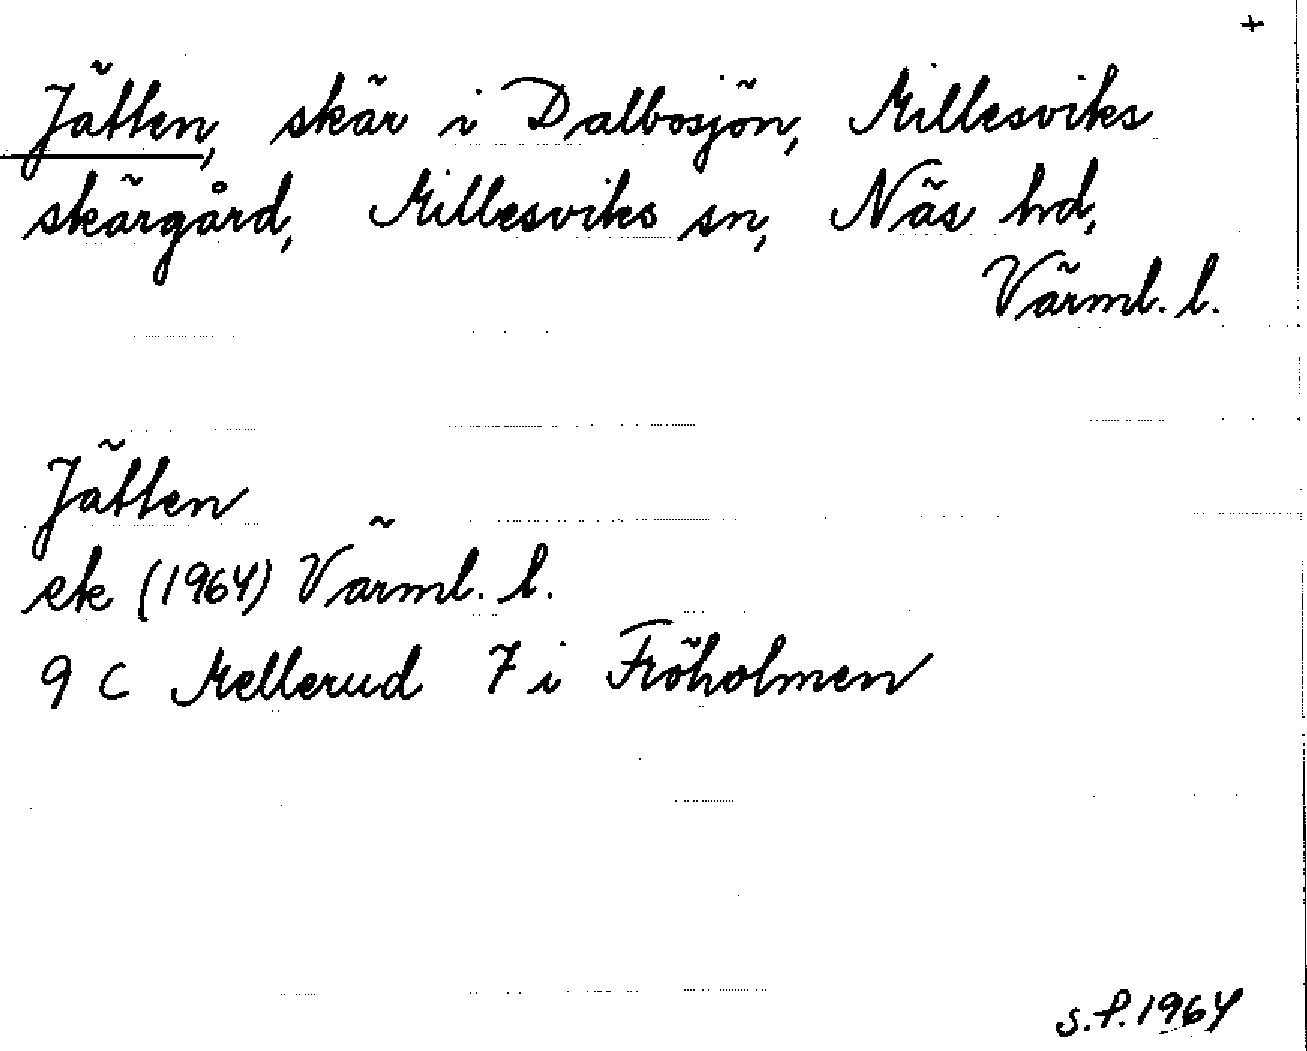 +
Jätten, skär i Dalbosjön, Millesviks
skärgård, Millesviks sn, Näs hd,
Värml. l.
Jätten
ek (1964) Värml. l.
9 C Mellerud 7 i Fröholmen
s.f. 1964